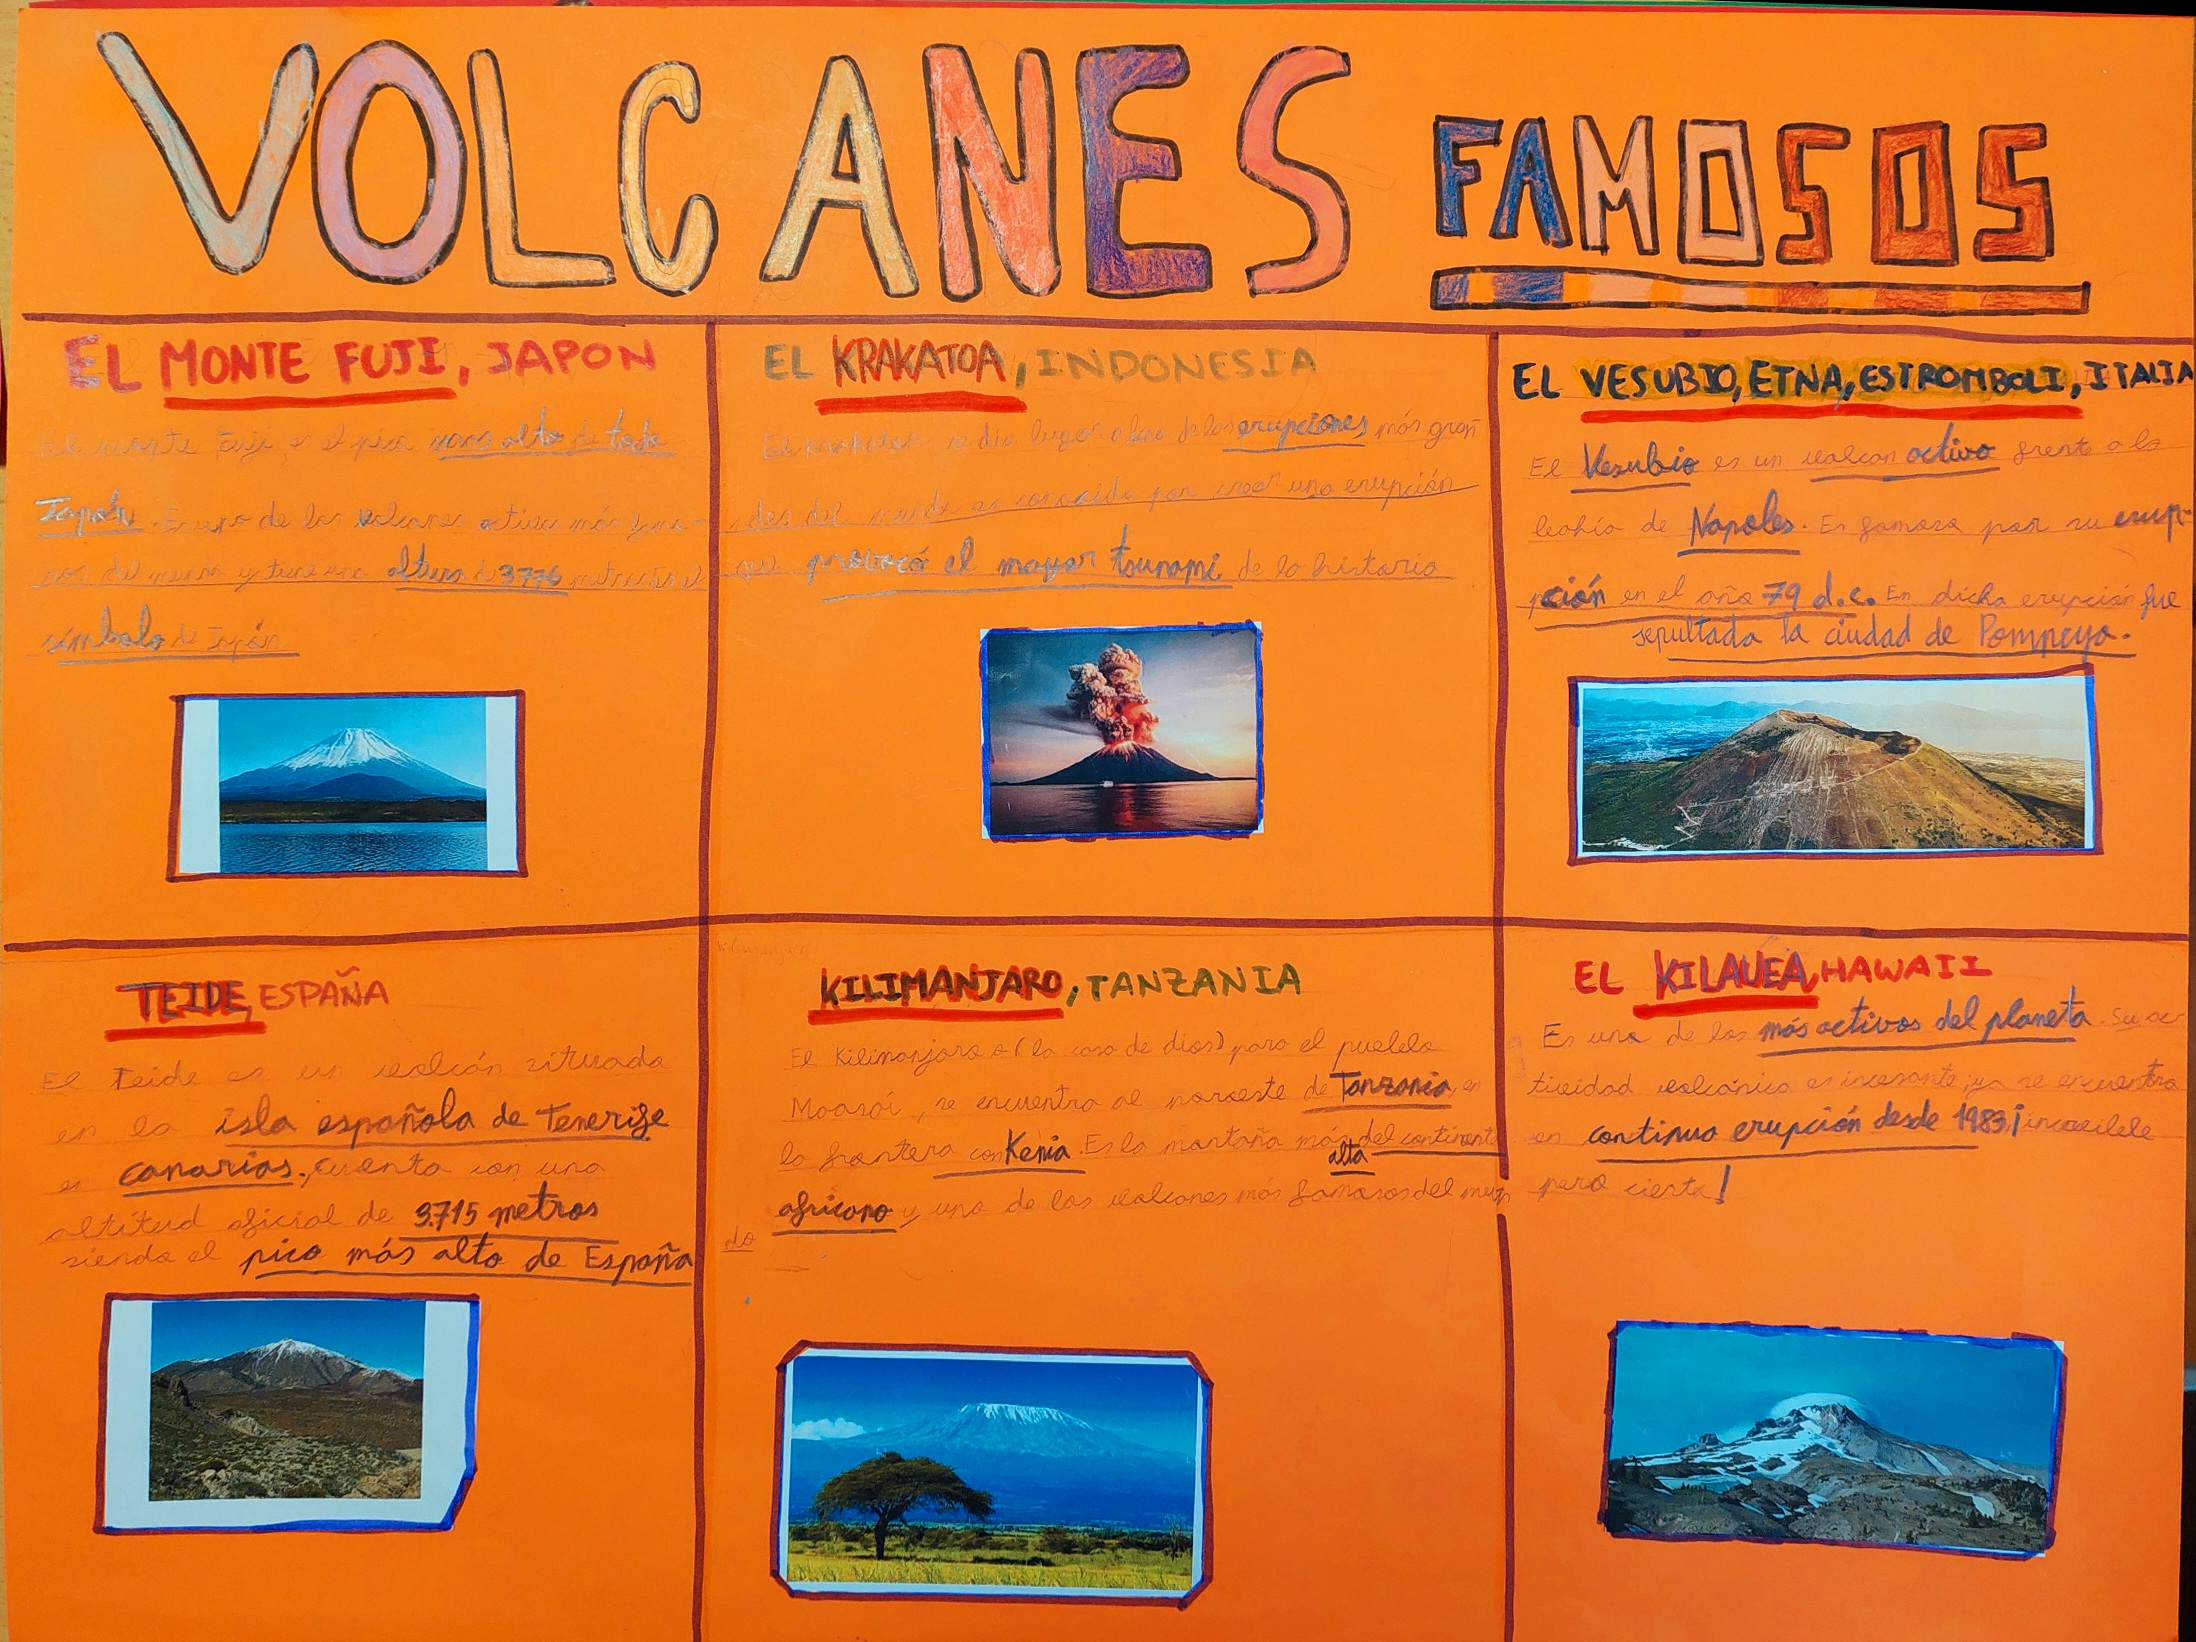 VOLCANES FAMOSOS
EL MONTE FUJI, JAPON
El monte Fuji, es el pico mas alto de todo
Japón. Es uno de los volcanes activos más famo-
sos del mundo y tiene una altura de 3776 metros es el
símbolo de Japón
EL KRAKATOA, INDONESIA
El Krakatoa se dio lugar a una de las erupciones más gran
des del mundo es conocido por crear una erupción
que provocó el mayor tsunami de la historia
EL VESUBIO, ETNA, ESTROMBOLI, ITALIA
El Vesubio es un volcan activo frente a la
bahía de Napoles. Es famoso por su erup-
pción en el año 79 d.c. En dicha erupción fue
sepultada la ciudad de Pompeya.
TEIDE, ESPAÑA
El Teide es un volcán situado
en la isla española de Tenerife
en canarias, cuenta con una
altitud oficial de 3.715 metros
siendo el pico más alto de España
KILIMANJARO, TANZANIA
El Kilimanjaro o (la casa de dios) para el pueblo
Maasai, se encuentra al noroeste de Tanzania, en
la frontera con Kenia. Es la montaña más del continente
alta
africano y uno de los volcanes más famosos del mun
do
EL KILAUEA, HAWAII
Es uno de los más activos del planeta. Su ac
tividad volcánica es incesante, ya se encuentra
en continuo erupción desde 1983, ¡increible
pero cierto!